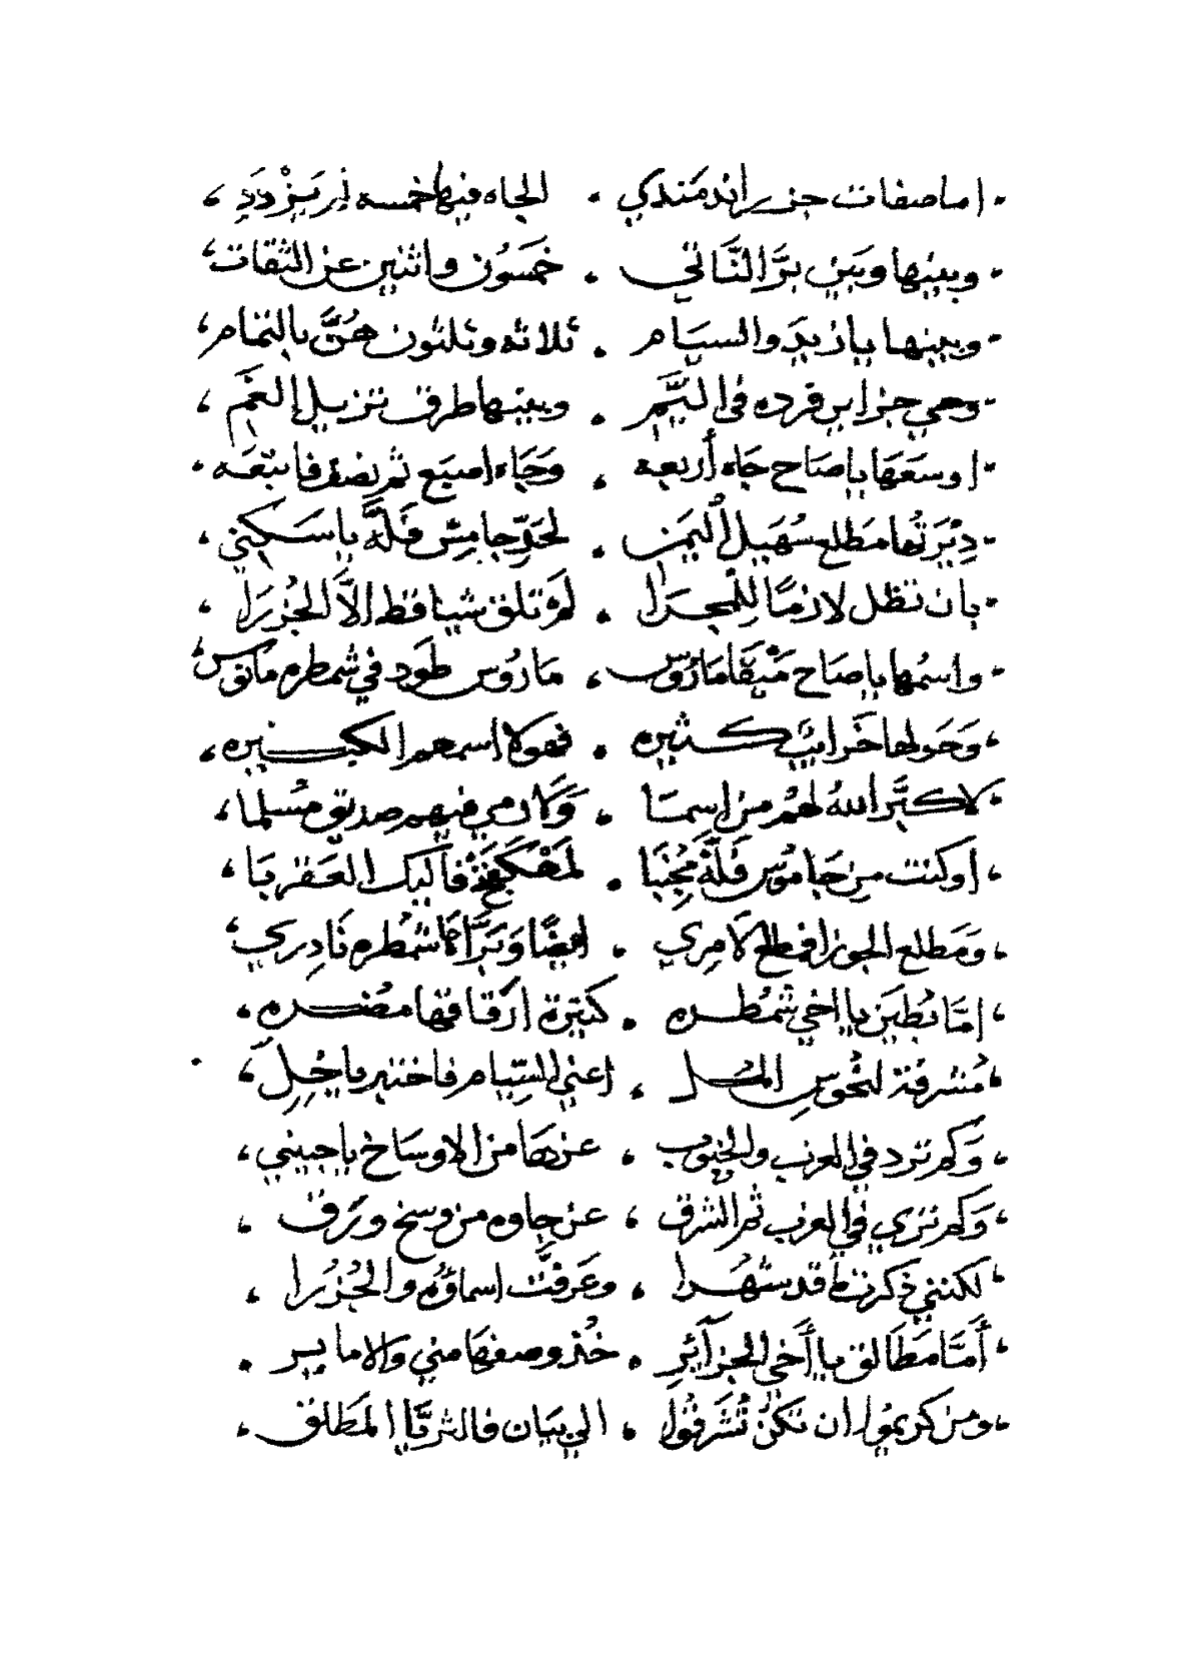 اما صفات جزر اندمندي ، الجاه فيها خمسه لم يزدد
وبينها وبين برّ الناتي ، خمسون واثنين عن الثقات
وبينها يا زيد والسيام ، ثلاثه وثلثون هنّ بالتمام
وهي جزاير فرده في اليمّ ، وبينها طرق تزيل الغمّ
اوسعها يا صاح جاه أربعه ، وجاء اصبع ثم نصف فاتبعه
ديرتها مطلع سهيل اليمن ، لحدّ جامس فلّه يا سكني
بان تظل لازمًا للمجرا ، لم تلق شيا قط الاّ الجزرا
واسمها يا صاح ميقاماروس ، ماروس طود في شمطره مانوس
وحولها خرايب كثيره ، فهولا اسمهم الكبيره
لا كبّر الله لهم من اسما ، وكان من فيهم صديق مسلما
او كنت من جاموس فلّه مجنبا ، لمهكفنج فاليك العقربا
ومطلع الجوزا فمطلع كامري ، ايضًا وبرّ شمطره نادري
امّا بطين يا اخي شمطره ، كثيرة ارقاقها مضره
مشرفة لنحوس المل ، اعني السيام فاختبر يا خلّ
وكم ترد في الغرب والجنوب ، عنها من الاوساخ يا حبيبي
وكم تري في الغرب ثم الشرق ، عن جاوه من وسخ ورق
لكنني ذكرت ما قد شهرا ، وعرفت اسماؤه والجزرا
أمّا مطالق يا أخي الجزآئر ، خذ وصفها مني والا ما يسر
ومن كريموا ان تكن تشرقوا ، الي بيان فالثريّا المطلق